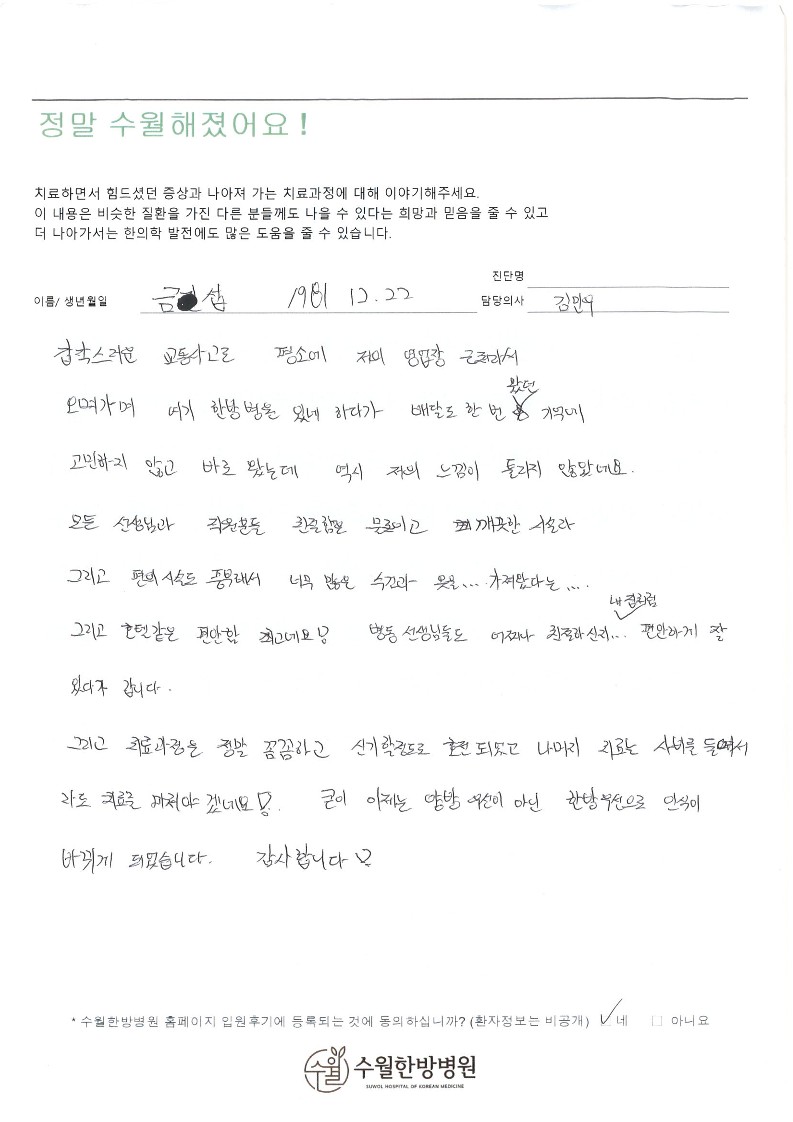 정말 수월해졌어요!
치료하면서 힘드셨던 증상과 나아져 가는 치료과정에 대해 이야기해주세요.
이 내용은 비슷한 질환을 가진 다른 분들께도 나을 수 있다는 희망과 믿음을 줄 수 있고
더 나아가서는 한의학 발전에도 많은 도움을 줄 수 있습니다.
진단명
이름/ 생년월일 금 섭 1981 12.22 담당의사
갑작스러운 교통사고로 평소에 저의 영업장 근처라서
오며가며 여기 한방병원 있네 하다가 배달도 한 번 왔던 기억에
고민하지 않고 바로 왔는데 역시 저의 느낌이 틀리지 않았네요.
모든 선생님과 직원분들 친절함은 물론이고 깨끗한 시설과
그리고 편의시설도 풍부해서 너무 많은 수건과 옷을... 가져왔다는...
그리고 호텔같은 편안함 최고네요! 병동 선생님들도 어찌나 친절하신지... 내 집처럼 편안하게 잘
있다가 갑니다.
그리고 치료과정은 정말 꼼꼼하고 신기할정도로 호전되었고 나머지 치료는 사비를 들여서
라도 치료를 마쳐야 겠네요!. 굳이 이제는 양방 우선이 아닌 한방우선으로 인식이
바뀌게 되었습니다. 감사합니다
* 수월한방병원 홈페이지 입원후기에 등록되는 것에 동의하십니까? (환자정보는 비공개) 네 아니요
수월 수월한방병원
SUWOL HOSPITAL OF KOREAN MEDICINE